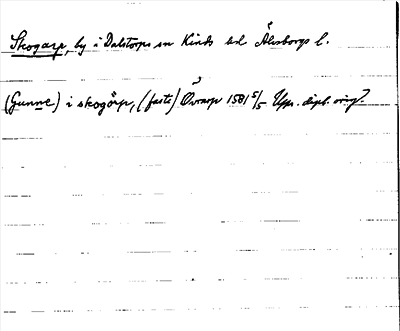 Skogarp, by i Dalstorps sn Kinds hd Älvsborgs l.
(Gunne) i skogörp, (faste) Øvrarp 1581 5/5 Upps. dipl. orig.